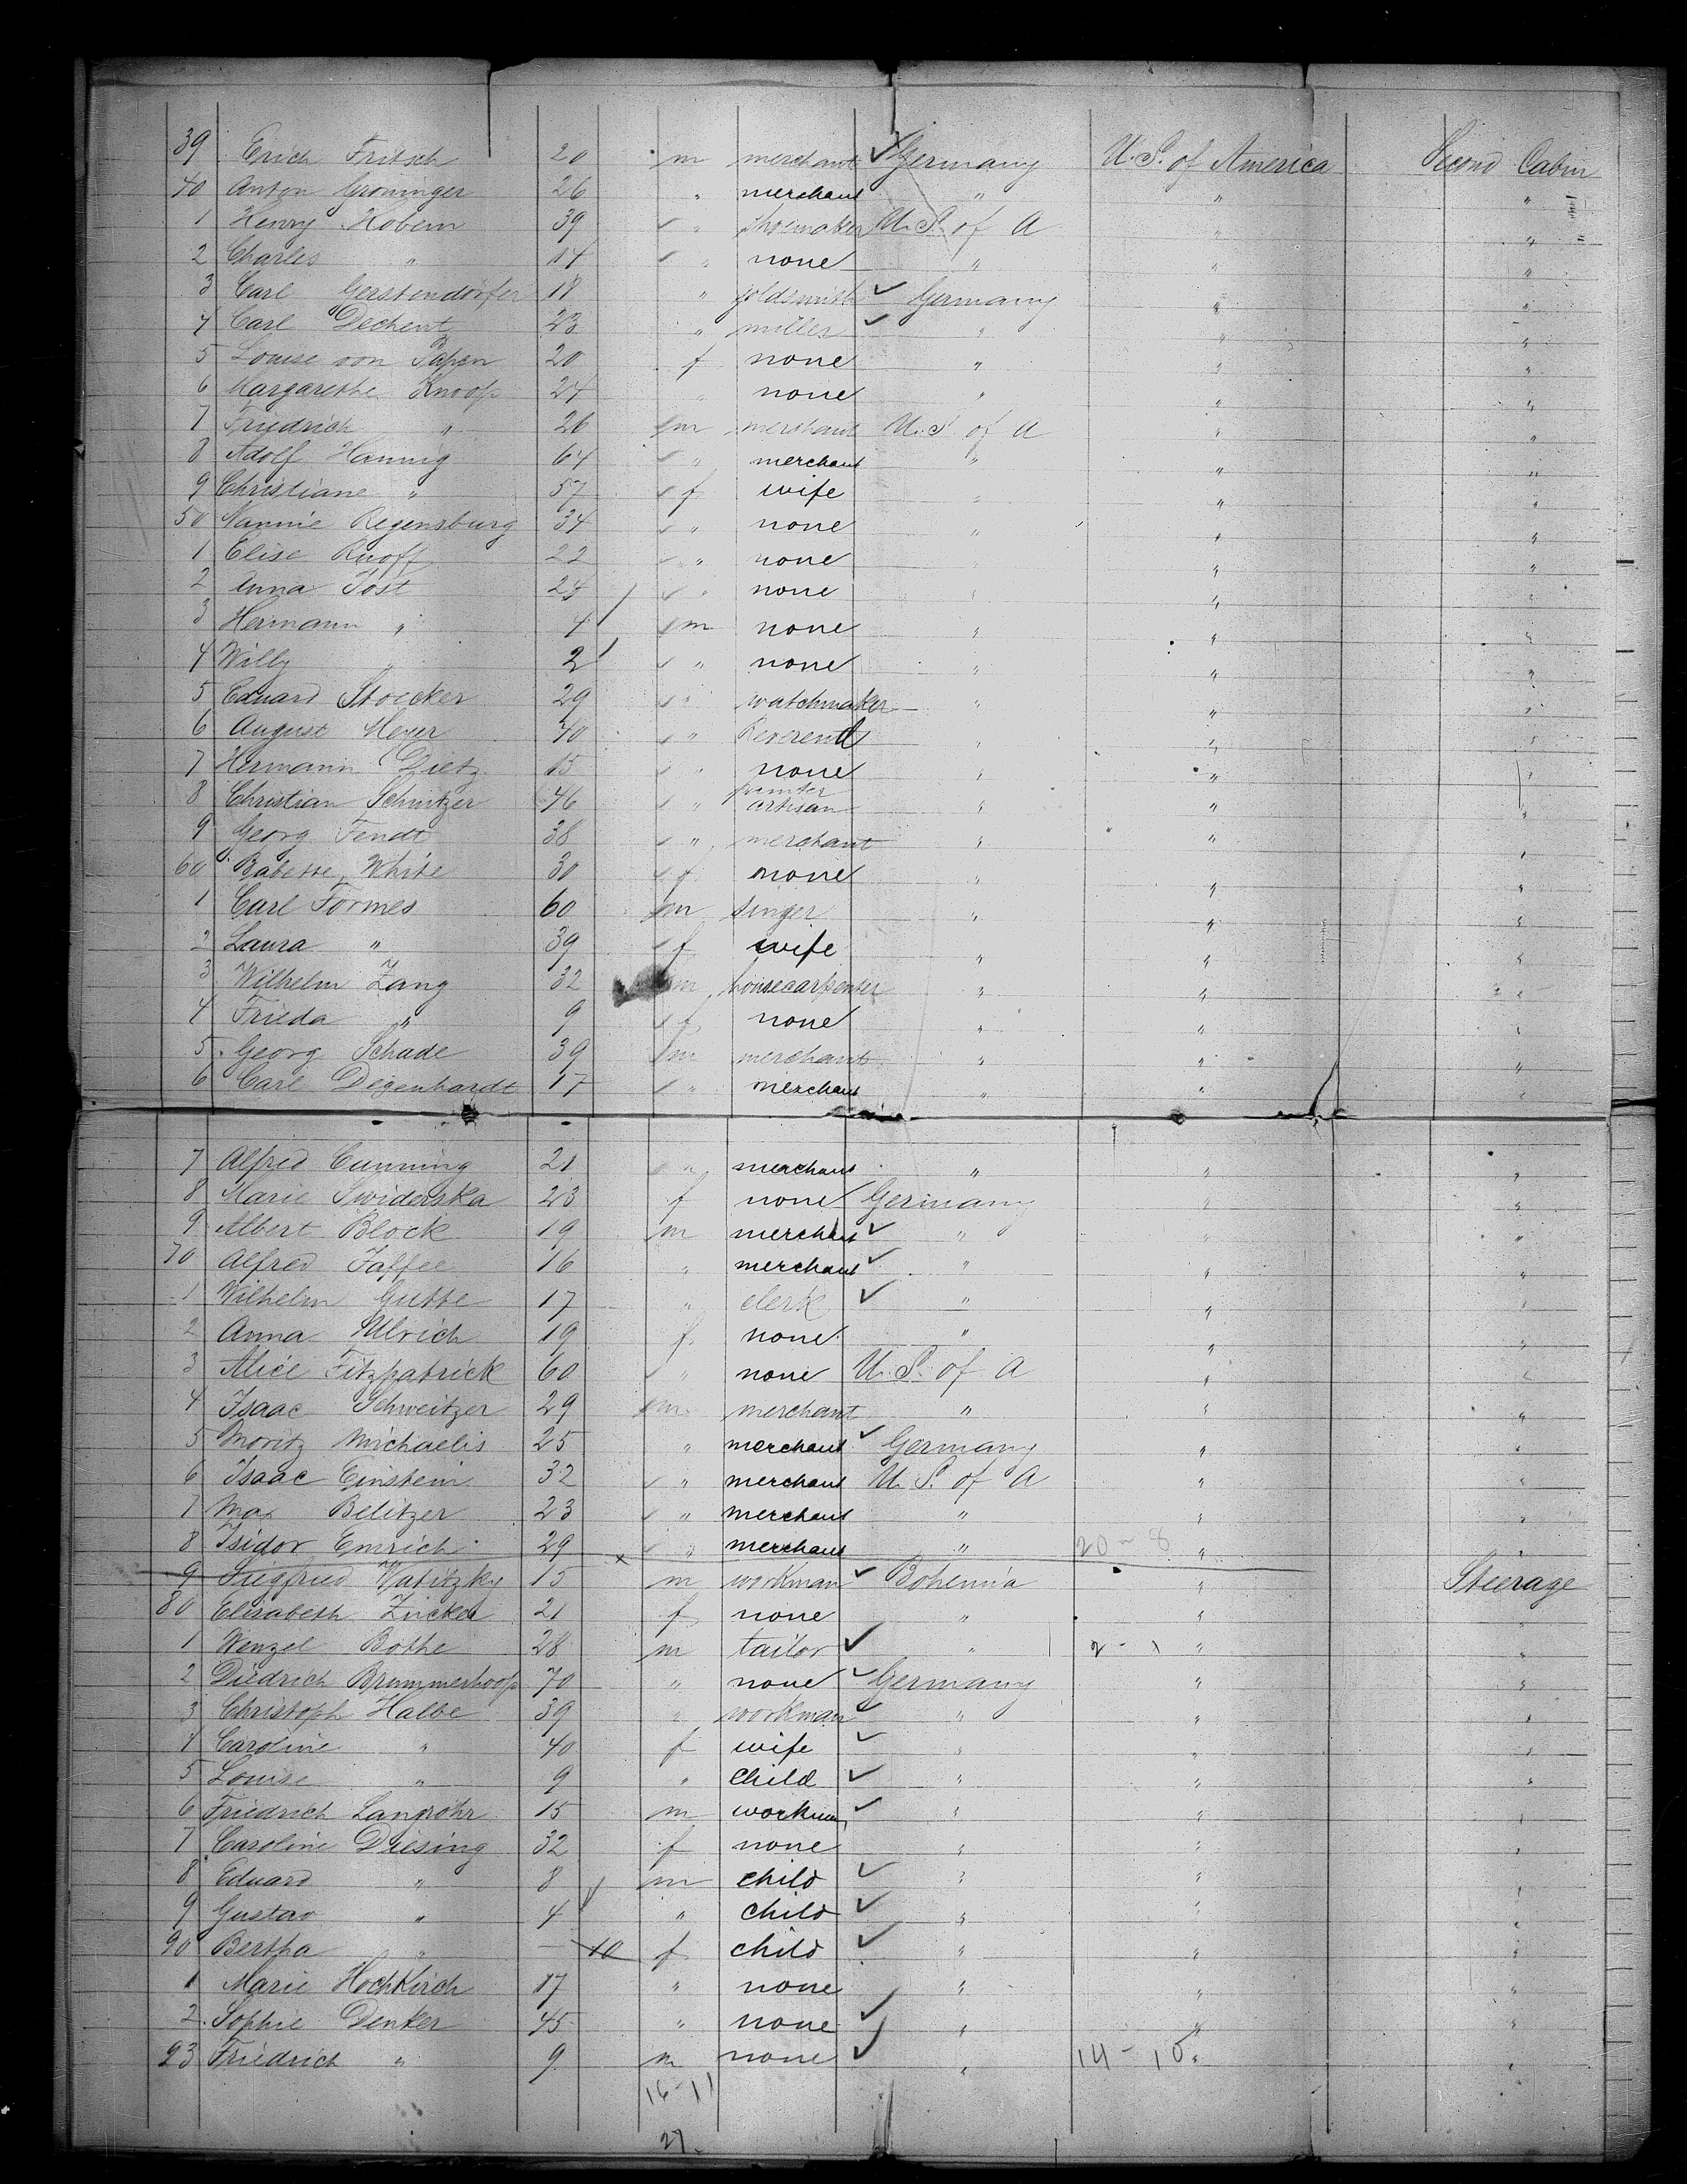 39 Erich Fritsch 20 m merchant ✓ Germany U.S. of America Second Cabin
40 Anton Groninger 26 " merchant " " "
1 Henry Kobem 39 ✓ " shoemaker U.S. of A " "
2 Charles " 14 ✓ " none " " "
3 Carl Gerstendörfer 18 " goldsmith ✓ Germany " "
4 Carl Dechent 23 " miller ✓ " " "
5 Louise von Papen 20 f none " " "
6 Margarethe Knoop 24 " none " " "
7 Friedrich " 26 ✓ m merchant U.S. of A " "
8 Adolf Hannig 64 ✓ " merchant " " "
9 Christiane " 57 ✓ f wife " " "
50 Nannie Regensburg 34 ✓ " none " " "
1 Elise Ruoff 22 ✓ " none " " "
2 Anna Jost 24 ✓ " none " " "
3 Hermann " 4 ✓ m none " " "
4 Willy " 2 ✓ " none " " "
5 Eduard Stoecker 29 ✓ " watchmaker " " "
6 August Meyer 40 ✓ " Reverend " " "
7 Hermann Dietz 15 ✓ " none " " "
8 Christian Schnitzer 46 ✓ " artisan " " "
9 Georg Fendt 38 ✓ " merchant " " "
60 Babette White 30 ✓ f none " " "
1 Carl Formes 60 ✓ m singer " " "
2 Laura " 39 ✓ f wife " " "
3 Wilhelm Zang 32 m housecarpenter " " "
4 Frieda " 9 ✓ f none " " "
5 Georg Schade 39 ✓ m merchant " " "
6 Carl Degenhardt 17 ✓ " merchant " " "
7 Alfred Cunning 21 " merchant " " "
8 Marie Swiderska 23 f none Germany " "
9 Albert Block 19 m merchant ✓ " " "
70 Alfred Jaffee 16 " merchant ✓ " " "
1 Wilhelm Gutte 17 " clerk ✓ " " "
2 Anna Ulrich 19 f none " " "
3 Alice Fitzpatrick 60 ✓ " none U.S. of A " "
4 Isaac Schweitzer 29 ✓ m merchant " " "
5 Moritz Michaelis 25 " merchant ✓ Germany " "
6 Isaac Einstein 32 ✓ " merchant U.S. of A " "
7 Max Belitzer 23 ✓ " merchant " " "
8 Isidor Emrich 29 ✓ " merchant " 20-8 " "
9 Siegfried Watitzky 15 m workman ✓ Bohemia " Steerage
80 Elisabeth Zucker 21 f none " " "
1 Wenzel Bothe 28 m tailor ✓ " 2-1 " "
2 Diedrich Brummerhoop 70 " none ✓ Germany " "
3 Christoph Halbe 39 " workman ✓ " " "
4 Caroline " 40 f wife ✓ " " "
5 Louise " 9 " child ✓ " " "
6 Friedrich Langrohr 15 m workman ✓ " " "
7 Caroline Diesing 32 f none " " "
8 Eduard " 8 m child ✓ " " "
9 Gustav " 4 " child ✓ " " "
90 Bertha " — 10 f child ✓ " " "
1 Marie Hochkirch 17 " none " " "
2 Sophie Denker 45 " none ✓ " " "
93 Friedrich " 9 m none ✓ " 14-10 " "
16-11
27